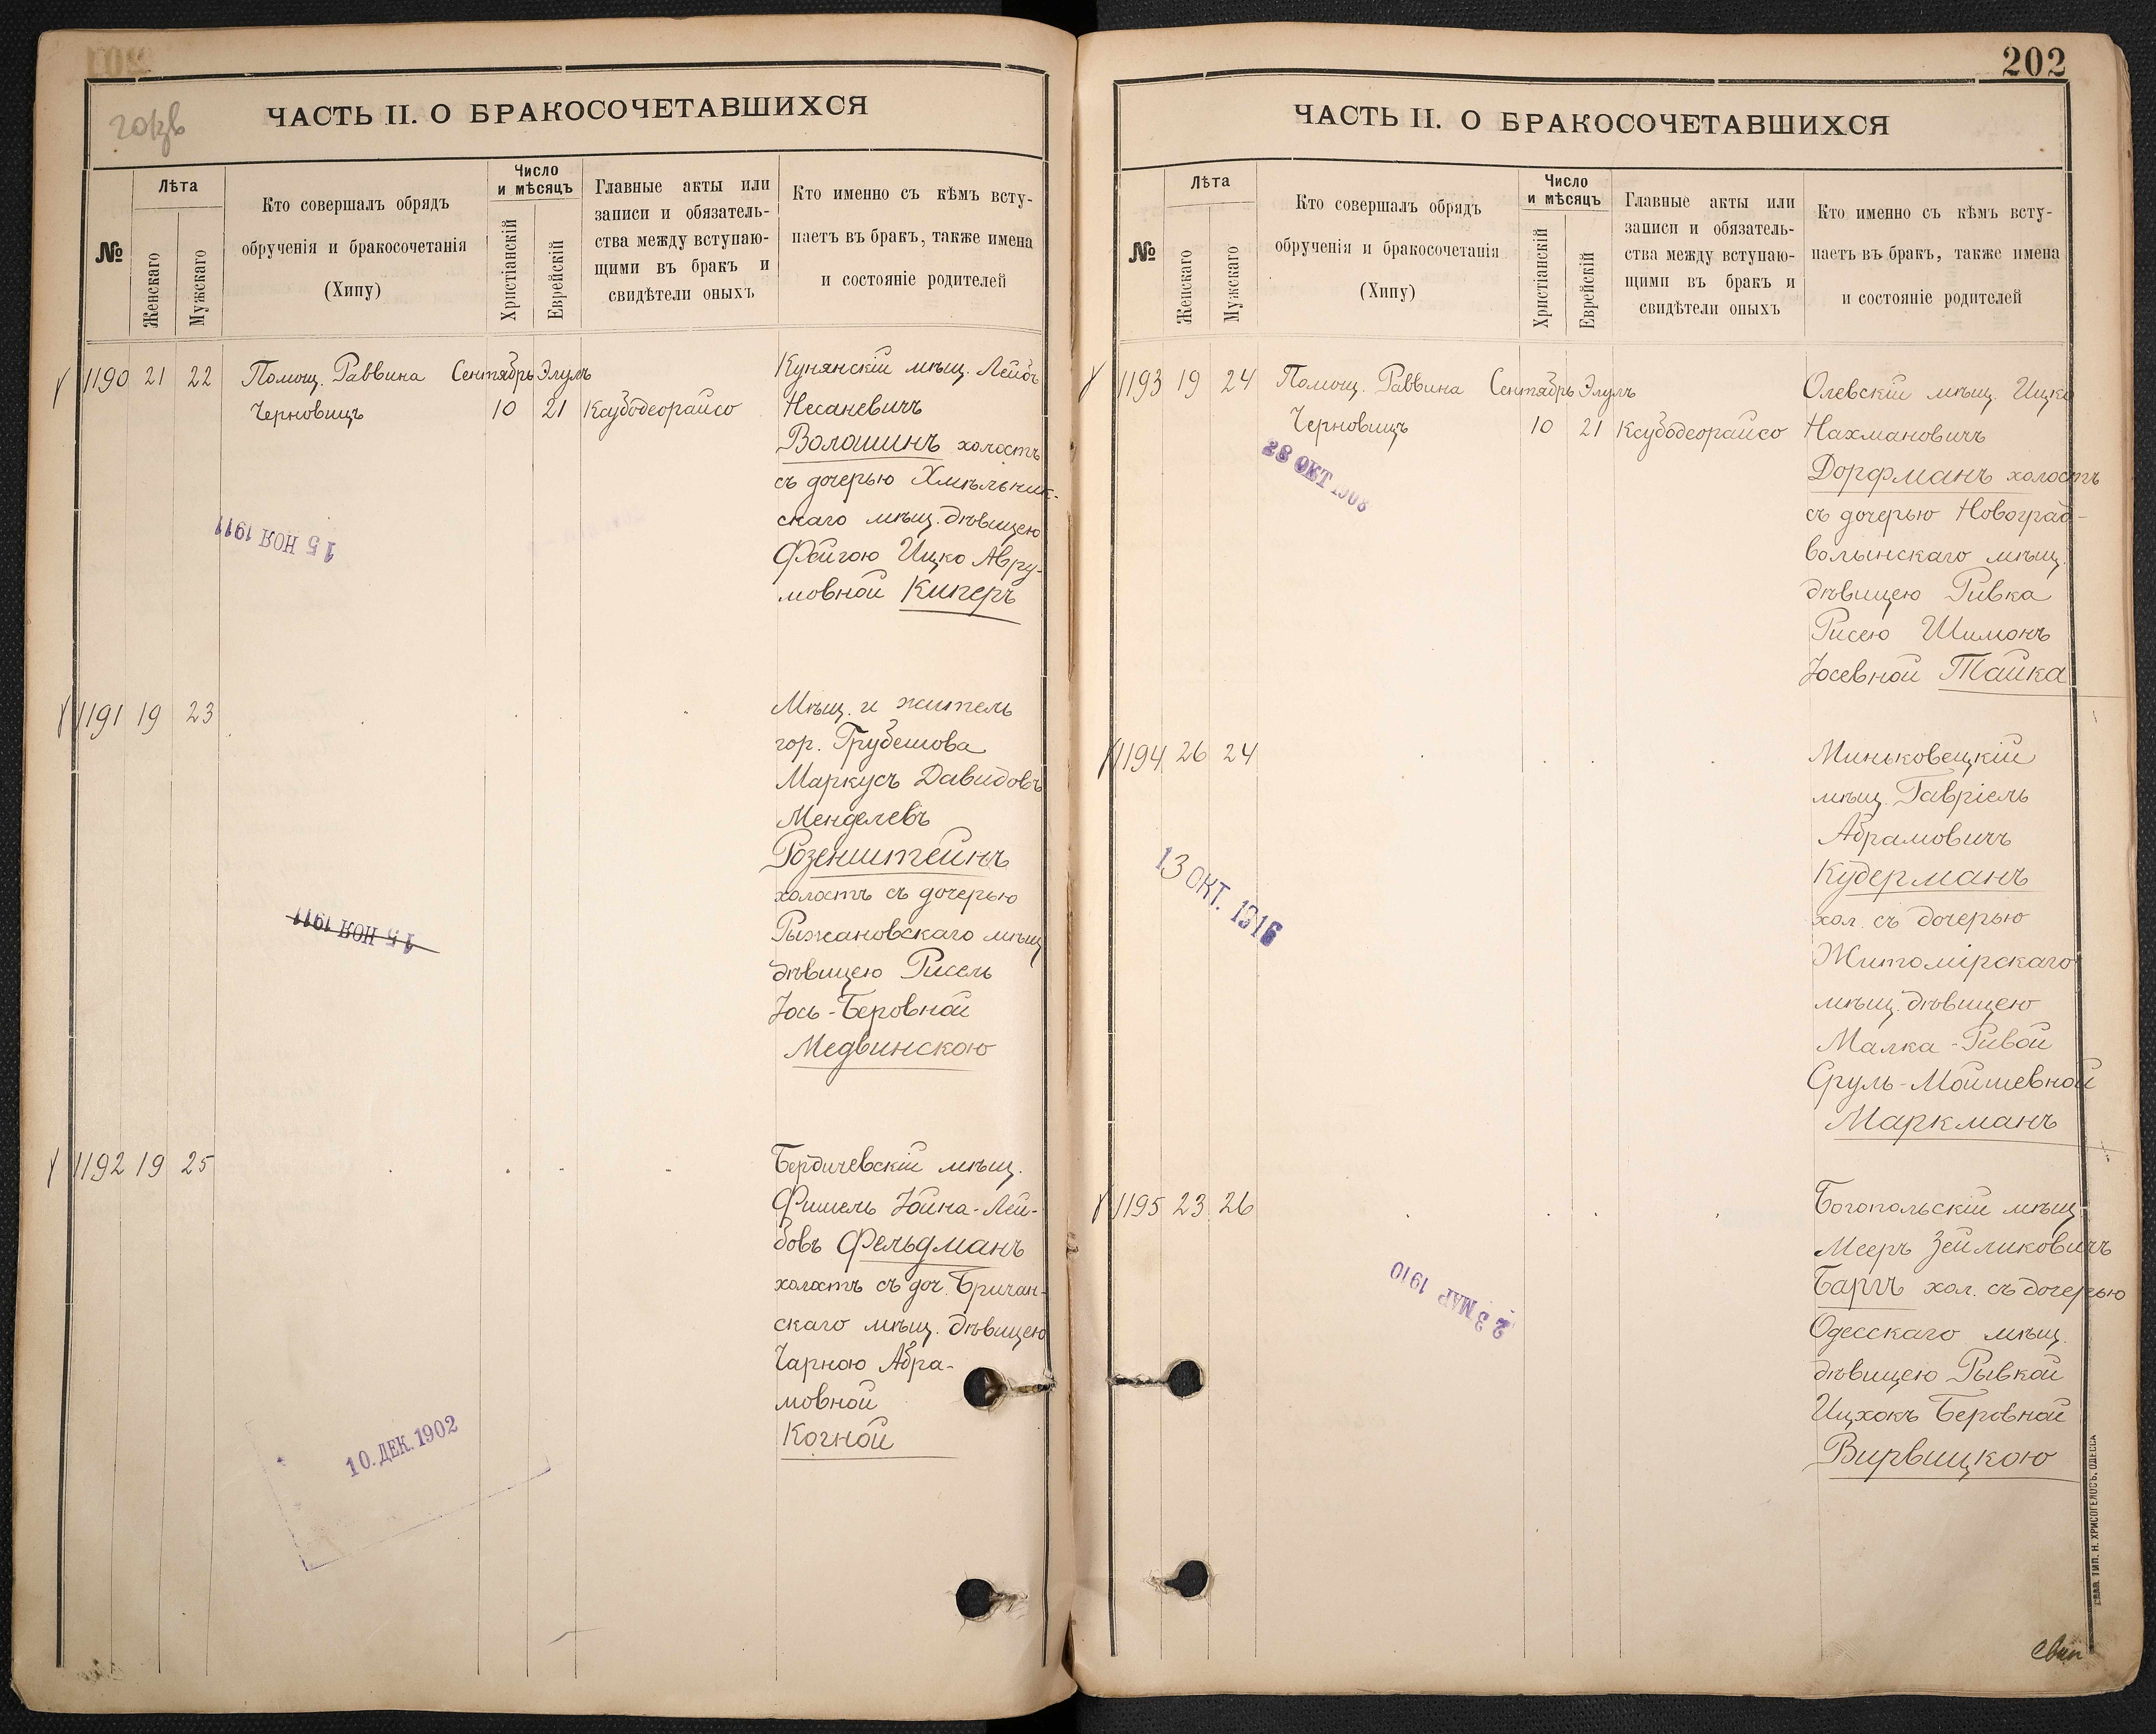 201зв
ЧАСТЬ II. О БРАКОСОЧЕТАВШИХСЯ
№
Лѣта
Женскаго
Мужскаго
Кто совершалъ обрядъ
обрученія и бракосочетанія
(Хипу)
Число
и мѣсяцъ
Христіанскій
Еврейскій
Главные акты или
записи и обязатель-
ства между вступаю-
щими въ бракъ и
свидѣтели оныхъ
Кто именно съ кѣмъ всту-
паетъ въ бракъ, также имена
и состояніе родителей
1190 21 22 Помощ. Раввина Сентябрь Элулъ
Черновицъ 10 21 Ксубодеорайсо
Кунянскій мѣщ. Лейбъ
Несаневичъ
Волошинъ холостъ
съ дочерью Хмѣльник-
скаго мѣщ. дѣвицею
Фейгою Ицко Авру-
мовной Киперъ
15 НОЯ 1911
1191 19 23
Мѣщ. и житель
гор. Грубешова
Маркусъ Давидовъ
Менделевъ
Розенштейнъ
холостъ съ дочерью
Рыжановскаго мѣщ
дѣвицею Рисель
Іось-Беровной
Медвинскою
15 НОЯ 1911
1192 19 25
Бердичевскій мѣщ.
Фишель Іойна-Лей-
бовъ Фельдманъ
холостъ съ доч. Бричан-
скаго мѣщ. дѣвицею
Чарною Абра-
мовной
Когной
10. ДЕК. 1902
202
ЧАСТЬ II. О БРАКОСОЧЕТАВШИХСЯ
№
Лѣта
Женскаго
Мужскаго
Кто совершалъ обрядъ
обрученія и бракосочетанія
(Хипу)
Число
и мѣсяцъ
Христіанскій
Еврейскій
Главные акты или
записи и обязатель-
ства между вступаю-
щими въ бракъ и
свидѣтели оныхъ
Кто именно съ кѣмъ всту-
паетъ въ бракъ, также имена
и состояніе родителей
1193 19 24 Помощ. Раввина Сентябрь Элулъ
Черновицъ 10 21 Ксубодеорайсо
28 ОКТ 1908
Олевскій мѣщ. Ицко
Нахмановичъ
Дорфманъ холостъ
съ дочерью Новоград-
волынскаго мѣщ.
дѣвицею Ривка
Рисею Шимонъ
Іосевной Тайка
1194 26 24
Миньковецкій
мѣщ. Гавріель
Абрамовичъ
Кудерманъ
хол. съ дочерью
Житомірскаго
мѣщ. дѣвицею
Малка-Ривой
Сруль-Мойшевной
Маркманъ
13 ОКТ. 1916
1195 23 26
Богопольскій мѣщ
Мееръ Зейликовичъ
Баргъ хол. съ дочерью
Одесскаго мѣщ.
дѣвицею Рывкой
Ицхокъ Беровной
Вирвицкою
23 МАР 1910
Слав. тип. Н. ХРИСОГЕЛОСЪ, ОДЕССА